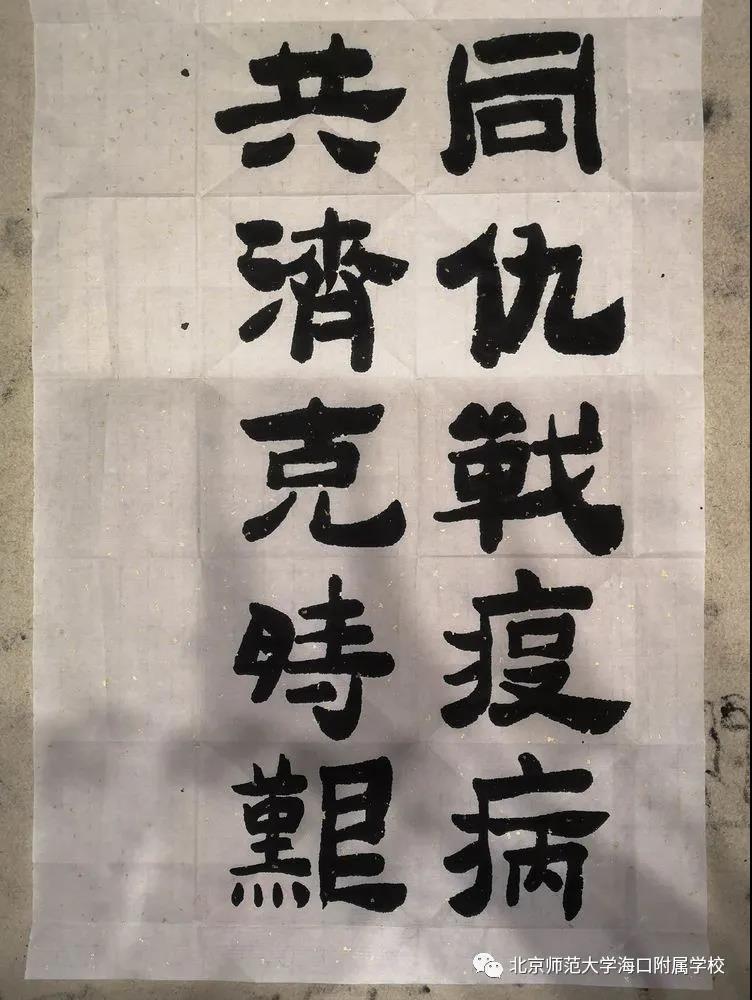 同仇戰疫病
共濟克時艱
北京师范大学海口附属学校